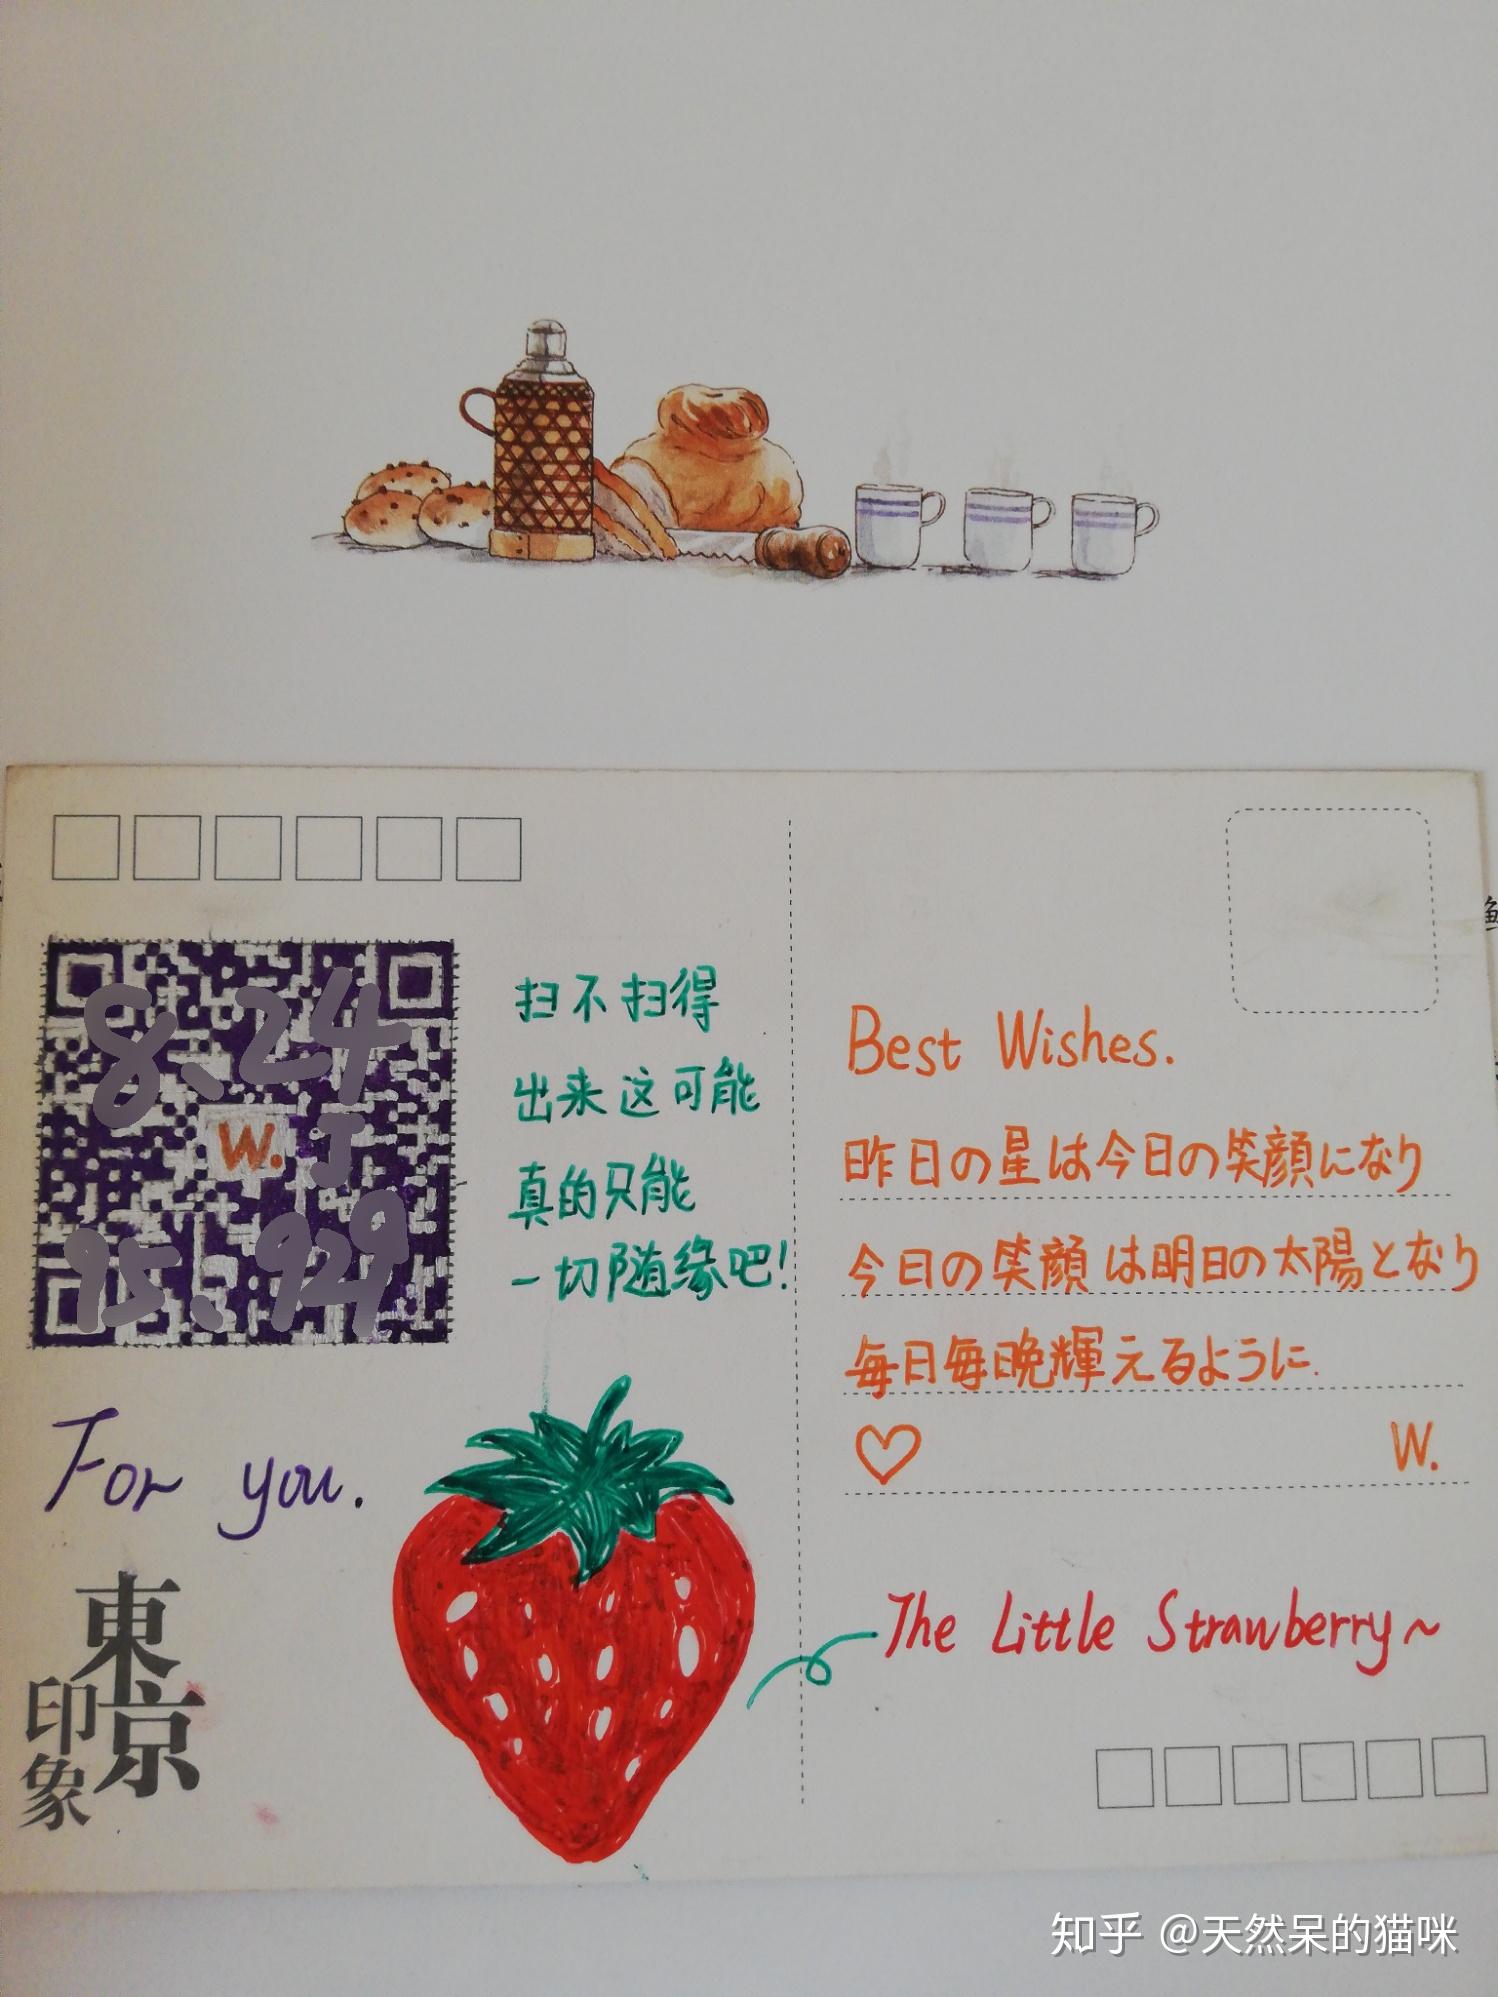 8、24
W. J
95、929
扫不扫得
出来这可能
真的只能
一切随缘吧!
For you.
東京
印象
Best Wishes.
昨日の星は今日の笑顔になり
今日の笑顔は明日の太陽となり
毎日毎晩輝えるように.
♡ W.
The Little Strawberry~
知乎 @天然呆的猫咪